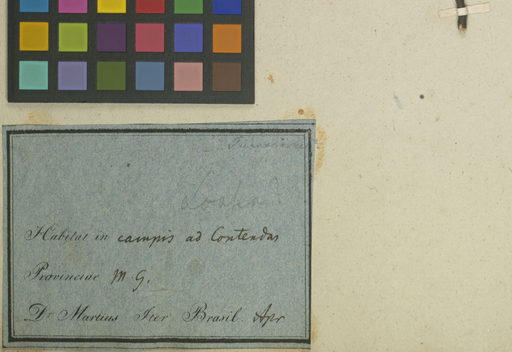 Habitat in campis ad Contendas
Provinciae M G.
Dr. Martius Iter Brasil. Apr